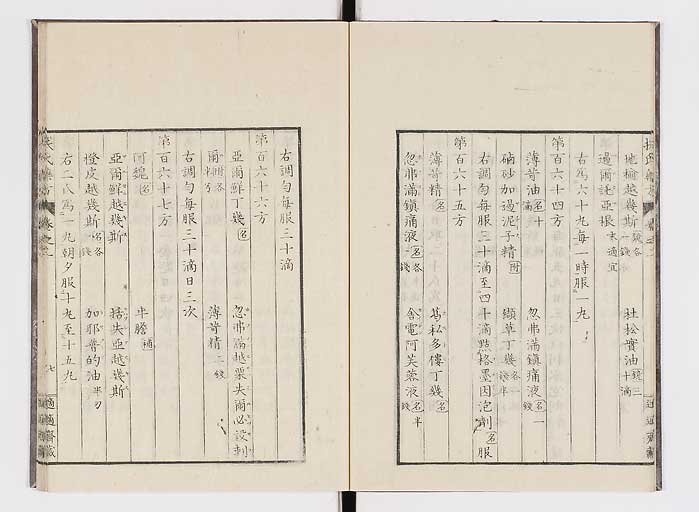 地楡越幾斯 各一錢 杜松實油 十滴
邉爾託亞根 末適宜
右為六十丸每一時服一丸
第百六十四方
薄荷油 名十 忽弗滿鎭痛液 名一錢
硇砂加遏泥子精 附 纈草丁幾 各一錢半
右調勻每服三十滴至四十滴點格墨因泡劑 名 服
第百六十五方
薄荷精 名 葛私多僂丁幾 名
忽弗滿鎭痛液 名各二錢 舍電阿芙蓉液 名半錢
右調勻每服三十滴
第百六十六方
亞爾鮮丁幾 名 忽弗滿越栗失爾必設刺
爾 附各半弓 薄荷精 二錢
右調勻每服三十滴日三次
第百六十七方
阿魏 名 牛膽 補
亞爾鮮越幾斯 括失亞越幾斯
橙皮越幾斯 名各錢 加耶普的油 半刀
右二氏為一丸朝夕服十丸至十五丸
卷之二
七
適適齋藏